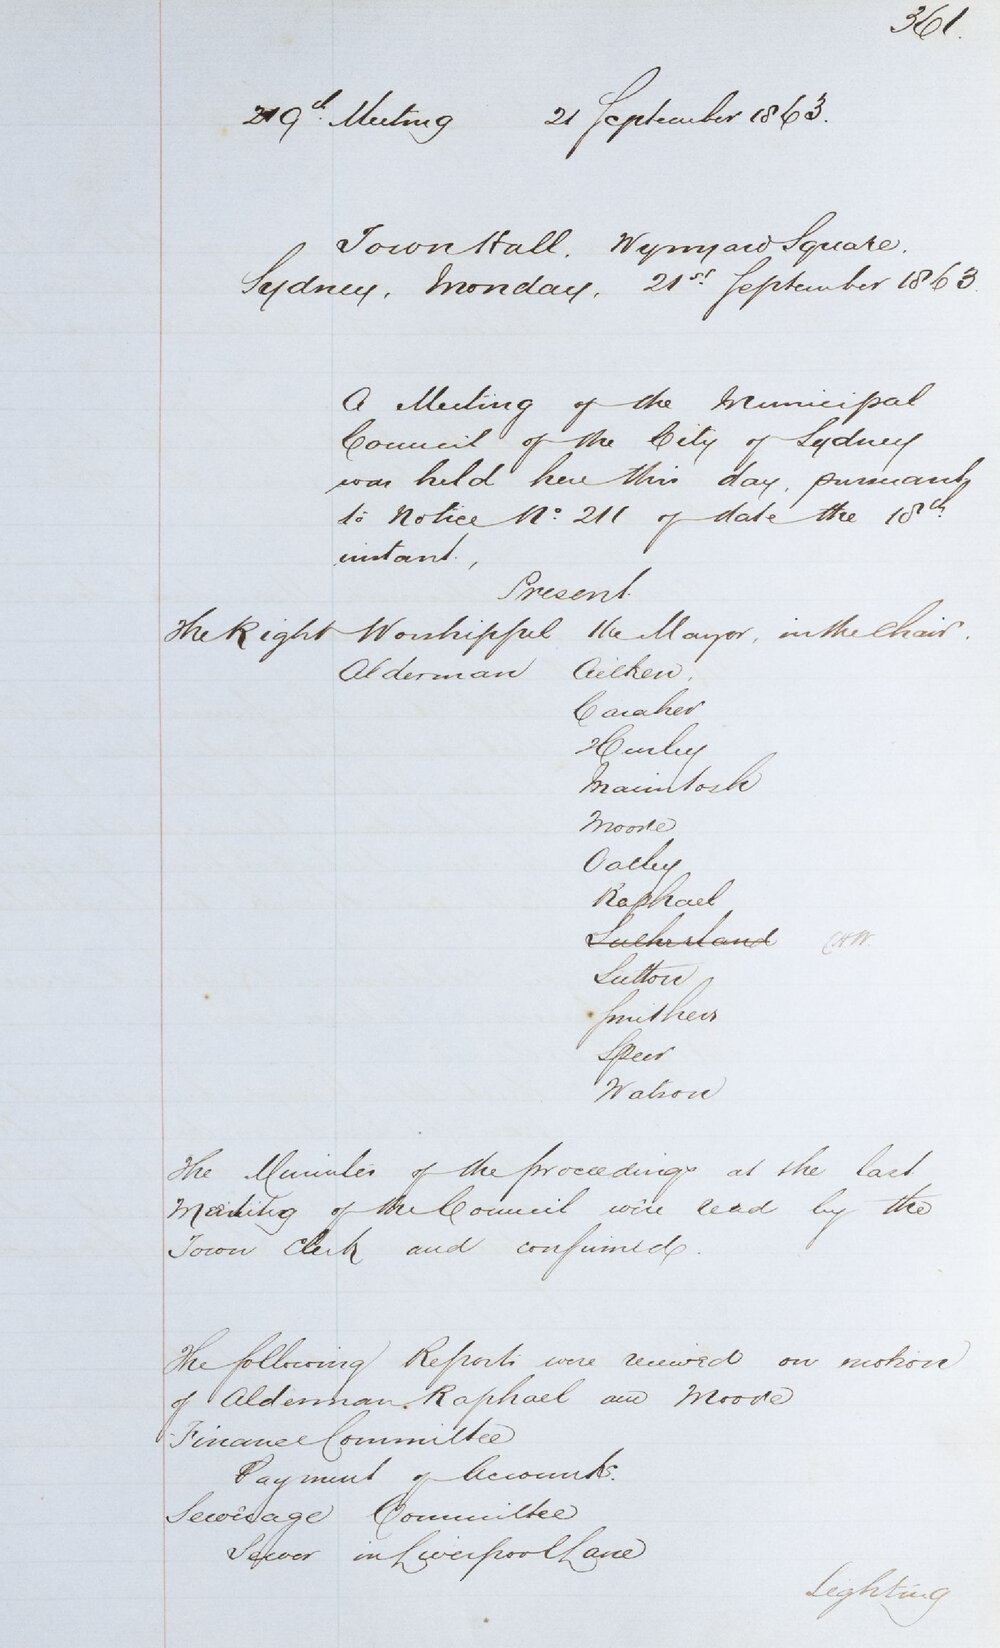 361.
219th Meeting 21 September 1863.
Town Hall. Wynyard Square.
Sydney. Monday. 21st September 1863
A Meeting of the Municipal
Council of the City of Sydney
was held here this day, pursuant
to Notice No. 211 of date the 18th
instant.,
Present
The Right Worshipful the Mayor, in the Chair.
Alderman Aitken.
Caraher
Hurley
Macintosh
Moore
Oatley
Raphael
Sutherland
Sutton
Smithers
Speer
Watson
The Minutes of the proceedings at the last
Meeting of the Council were read by the
Town Clerk and confirmed.
The following Reports were received on motion
of Alderman Raphael and Moore
Finance Committee
Payment of Accounts.
Sewerage Committee
Sewer in Liverpool Lane
Lighting